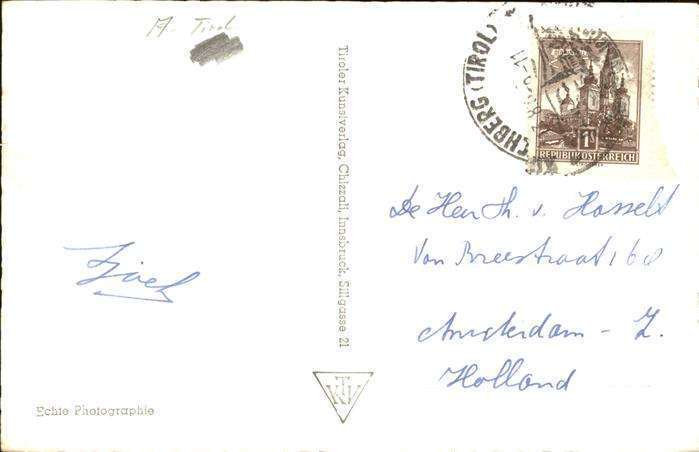 A. Tirol
Tiroler Kunstverlag, Chizzali, Innsbruck, Sillgasse 21
TKV
Echte Photographie
KIRCHBERG (TIROL)
1S
REPUBLIK ÖSTERREICH
De Heer Th. v. Hasselt
Van Breestraat 168
Amsterdam - Z.
Holland